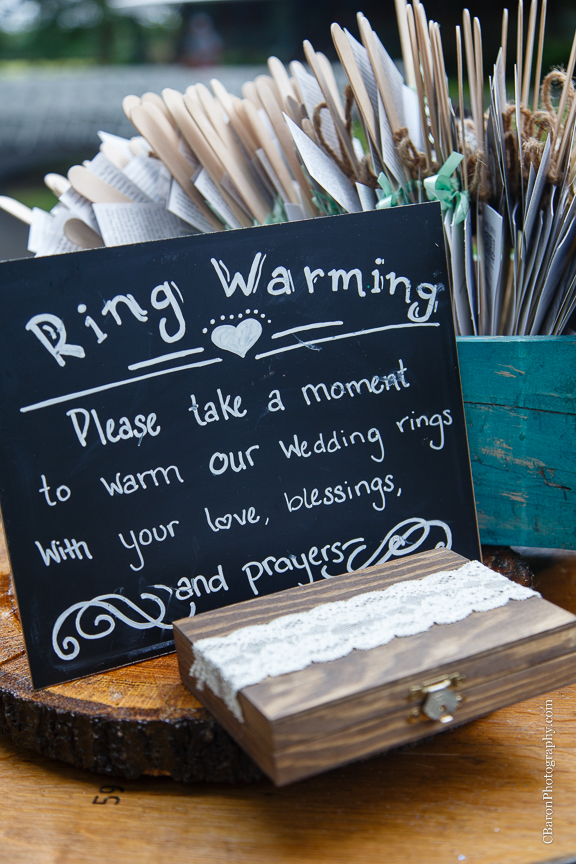 Ring Warming
Please take a moment
to warm our wedding rings
with your love, blessings,
and prayers
59
CBaronPhotography.com